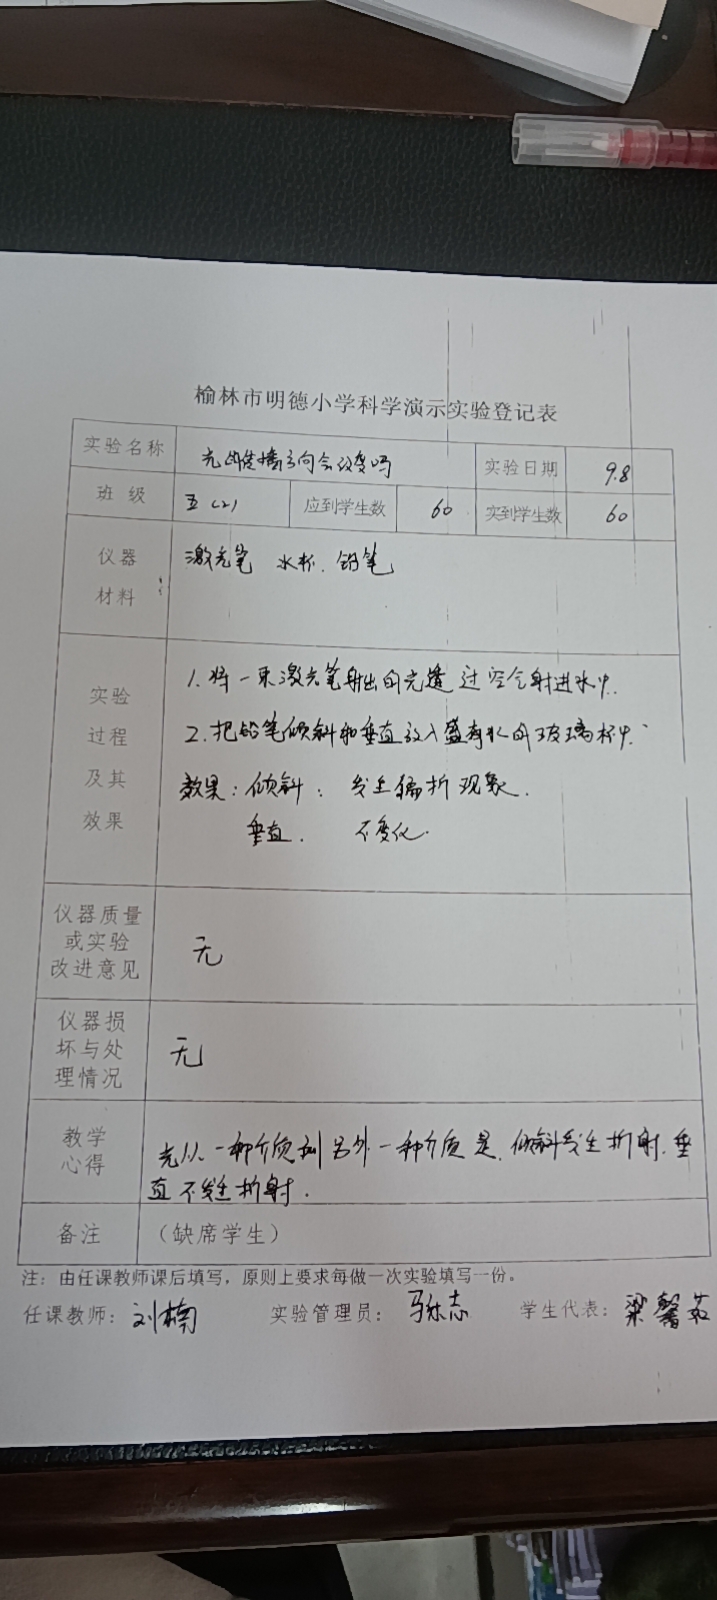 榆林市明德小学科学演示实验登记表
实验名称 光的传播方向会改变吗 实验日期 9.8
班 级 五（2） 应到学生数 60 实到学生数 60
仪器 激光笔 水杯、铅笔
材料
实验 1. 将一束激光笔射出的光透过空气射进水中.
过程 2. 把铅笔倾斜和垂直放入盛有水的玻璃杯中.
及其 效果：倾斜： 发生偏折现象.
效果 垂直. 不变化.
仪器质量
或实验 无
改进意见
仪器损
坏与处 无
理情况
教学 光从一种介质到另外一种介质是, 倾斜发生折射. 垂
心得 直不发生折射.
备注 （缺席学生）
注：由任课教师课后填写，原则上要求每做一次实验填写一份。
任课教师：刘楠 实验管理员：马 志 学生代表：梁馨茹